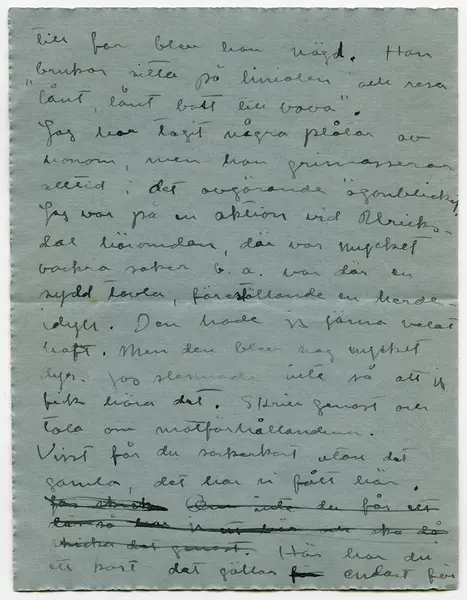 till far blev han nöjd. Han
"brukar sitta på linialen" och resa
"långt, långt bott till vova".
Jag har tagit några plåtar av
honom, men han grimasserar
alltid i det avgörande ögonblicket.
Jag var på en aktion vid Ulriks-
dal häromdan, där var mycket
vackra saker b. a. var där en
sydd tavla, föreställande en herde-
idyll. Den hade jag gärna velat
haft. Men den blev nog mycket
dyr. Jag stannade inte så att jag
fick höra det. Skriv genast och
tala om matförhållandena.
Visst får du sockerkort utan det
gamla, det har vi fått här.
inte du får ett
jag ett här och ska då
skicka det genast. Här har du
ett kort det gäller endast för